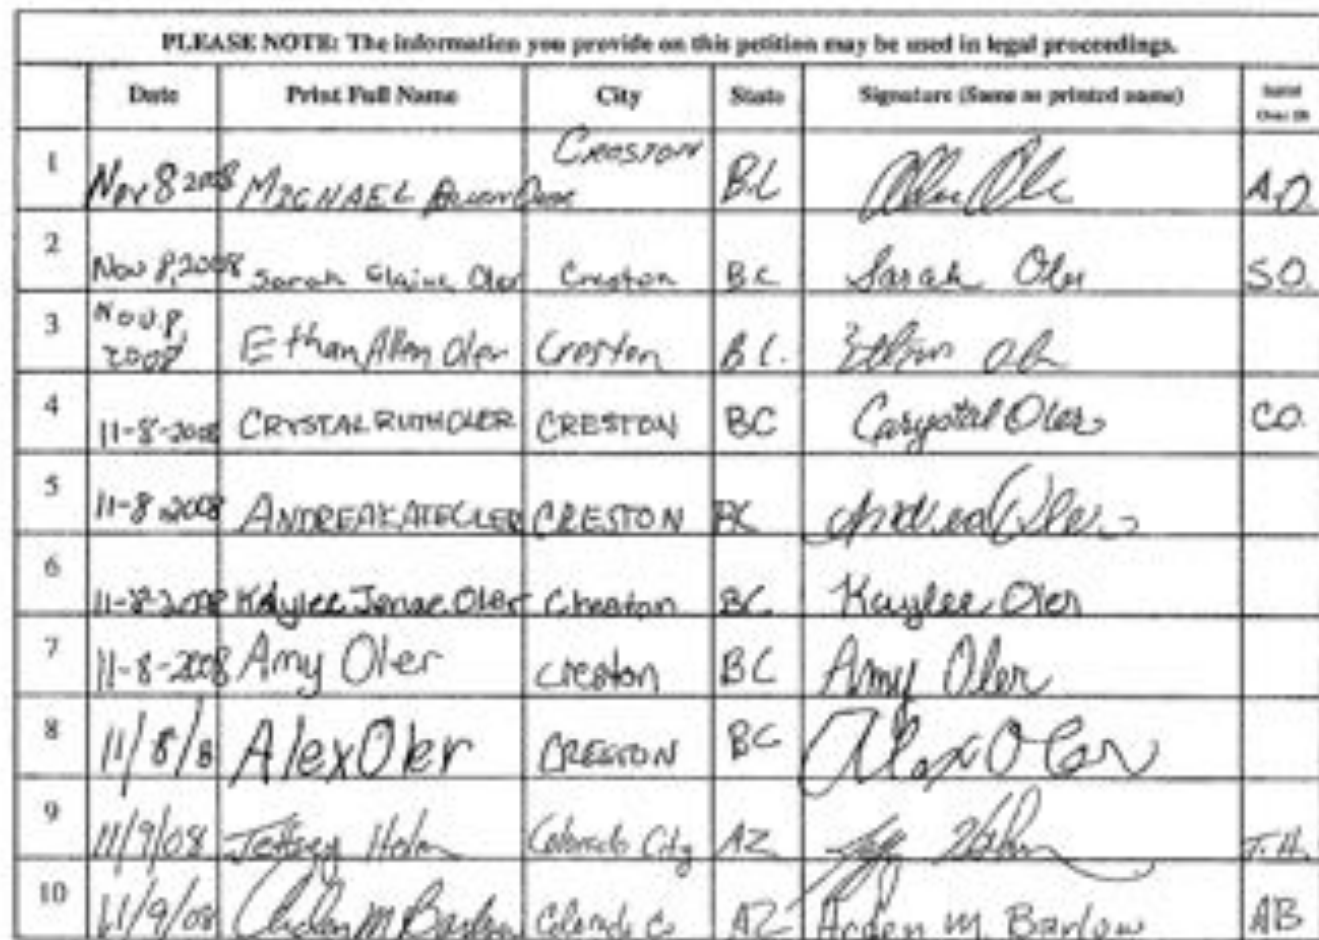 PLEASE NOTE: The information you provide on this petition may be used in legal proceedings.
Date Print Full Name City State Signature (Same as printed name) Initial Over 18
1 Nov 8 2008 MICHAEL Creston B.C. A.O.
2 Nov 8, 2008 Sarah Elaine Oler Creston B.C. Sarah Oler S.O.
3 Nov. 8, 2008 Ethan Allen Oler Creston B.C. Ethan Oler
4 11-8-2008 CRYSTAL RUTH OLER CRESTON BC Crystal Oler C.O.
5 11-8-2008 ANDREA KATE OLER CRESTON BC Andrea Oler
6 11-8-2008 Kaylee Janae Oler Creston BC Kaylee Oler
7 11-8-2008 Amy Oler Creston BC Amy Oler
8 11/8/8 Alex Oler CRESTON BC Alex Oler
9 11/9/08 Jeffrey Holm Colorado City AZ
10 11/9/08 M Barlow Colorado C AZ Arden M. Barlow AB